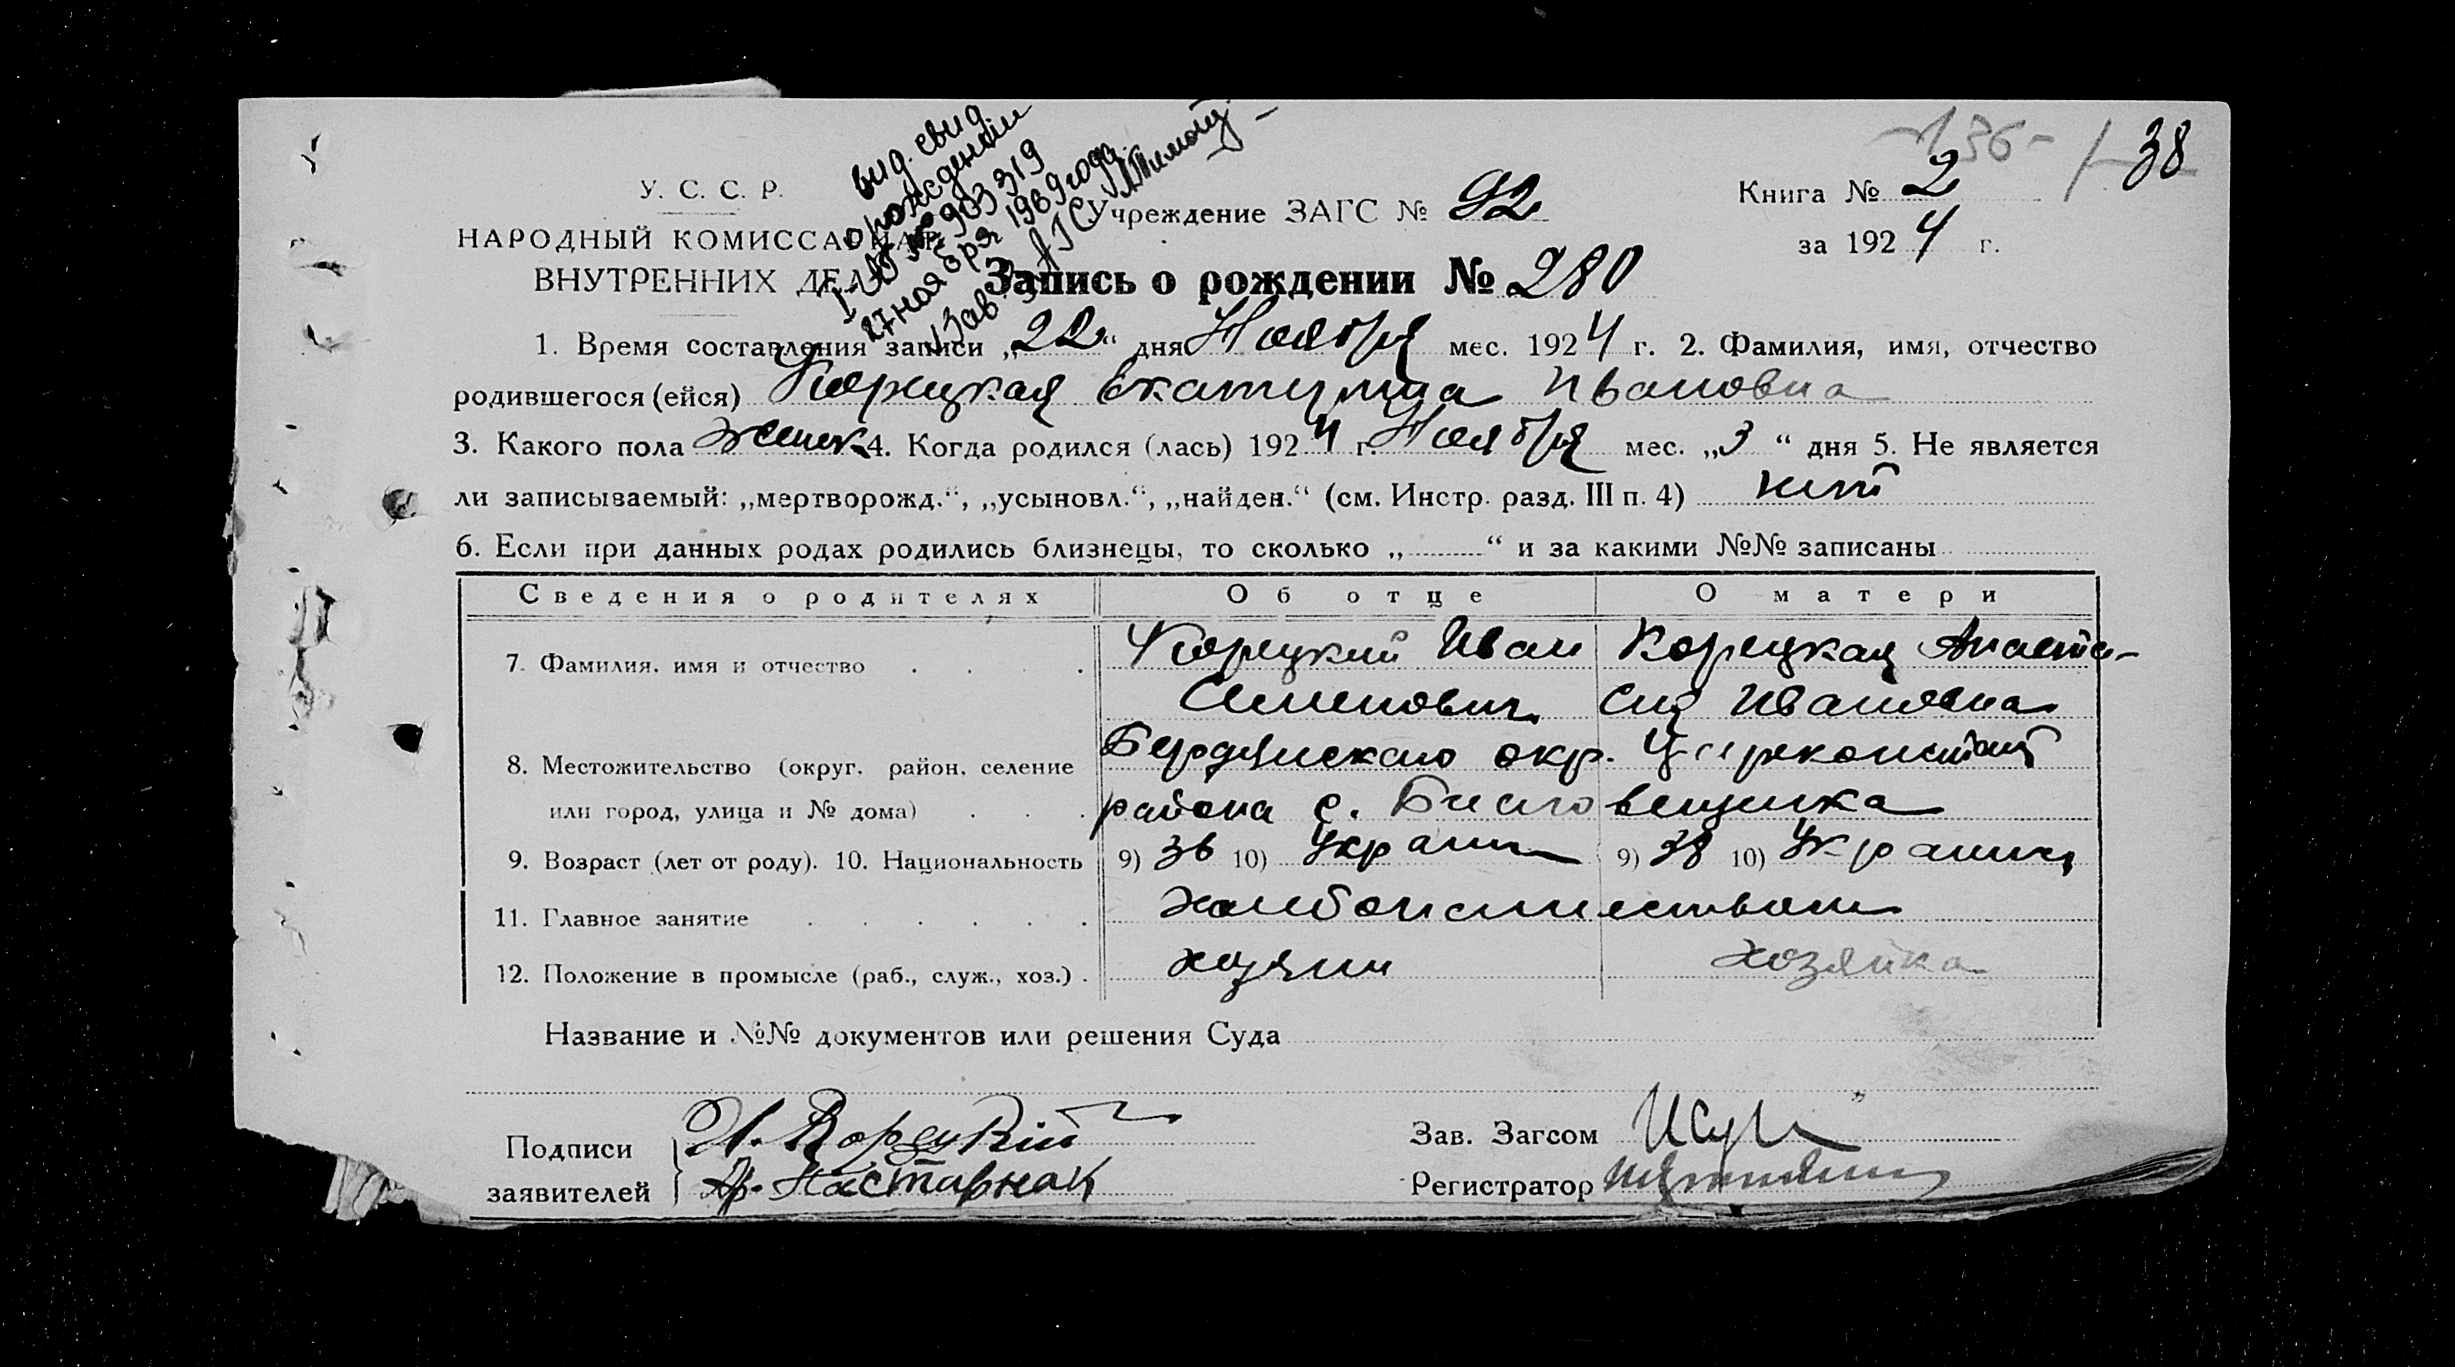 -136- 38
вид. свид.
о рождении
903319
27 ноября 1969 года
Зав ЗАГС
У. С. С. Р.
НАРОДНЫЙ КОМИССАРИАТ
ВНУТРЕННИХ ДЕЛ
Учреждение ЗАГС № 92
Книга № 2
за 1924 г.
Запись о рождении № 280
1. Время составления записи „22“ дня Ноября мес. 1924 г. 2. Фамилия, имя, отчество
родившегося (ейся) Корецкая Екатерина Ивановна
3. Какого пола женск 4. Когда родился (лась) 1924 г. Ноября мес. „3“ дня 5. Не является
ли записываемый: „мертворожд.“, „усыновл.“, „найден.“ (см. Инстр. разд. III п. 4) нет
6. Если при данных родах родились близнецы, то сколько „ “ и за какими №№ записаны
Сведения о родителях Об отце О матери
7. Фамилия, имя и отчество Корецкий Иван Корецкая Анаста-
Семенович сия Ивановна
8. Местожительство (округ, район, селение Бердянского окр. Царевконстант
или город, улица и № дома) района с. Благовещенка
9. Возраст (лет от роду). 10. Национальность 9) 36 10) Украин 9) 38 10) Украинц
11. Главное занятие хлебопашеством
12. Положение в промысле (раб., служ., хоз.) хозяин хозяйка
Название и №№ документов или решения Суда
Подписи И. Корецкій
заявителей Наставнак
Зав. Загсом
Регистратор